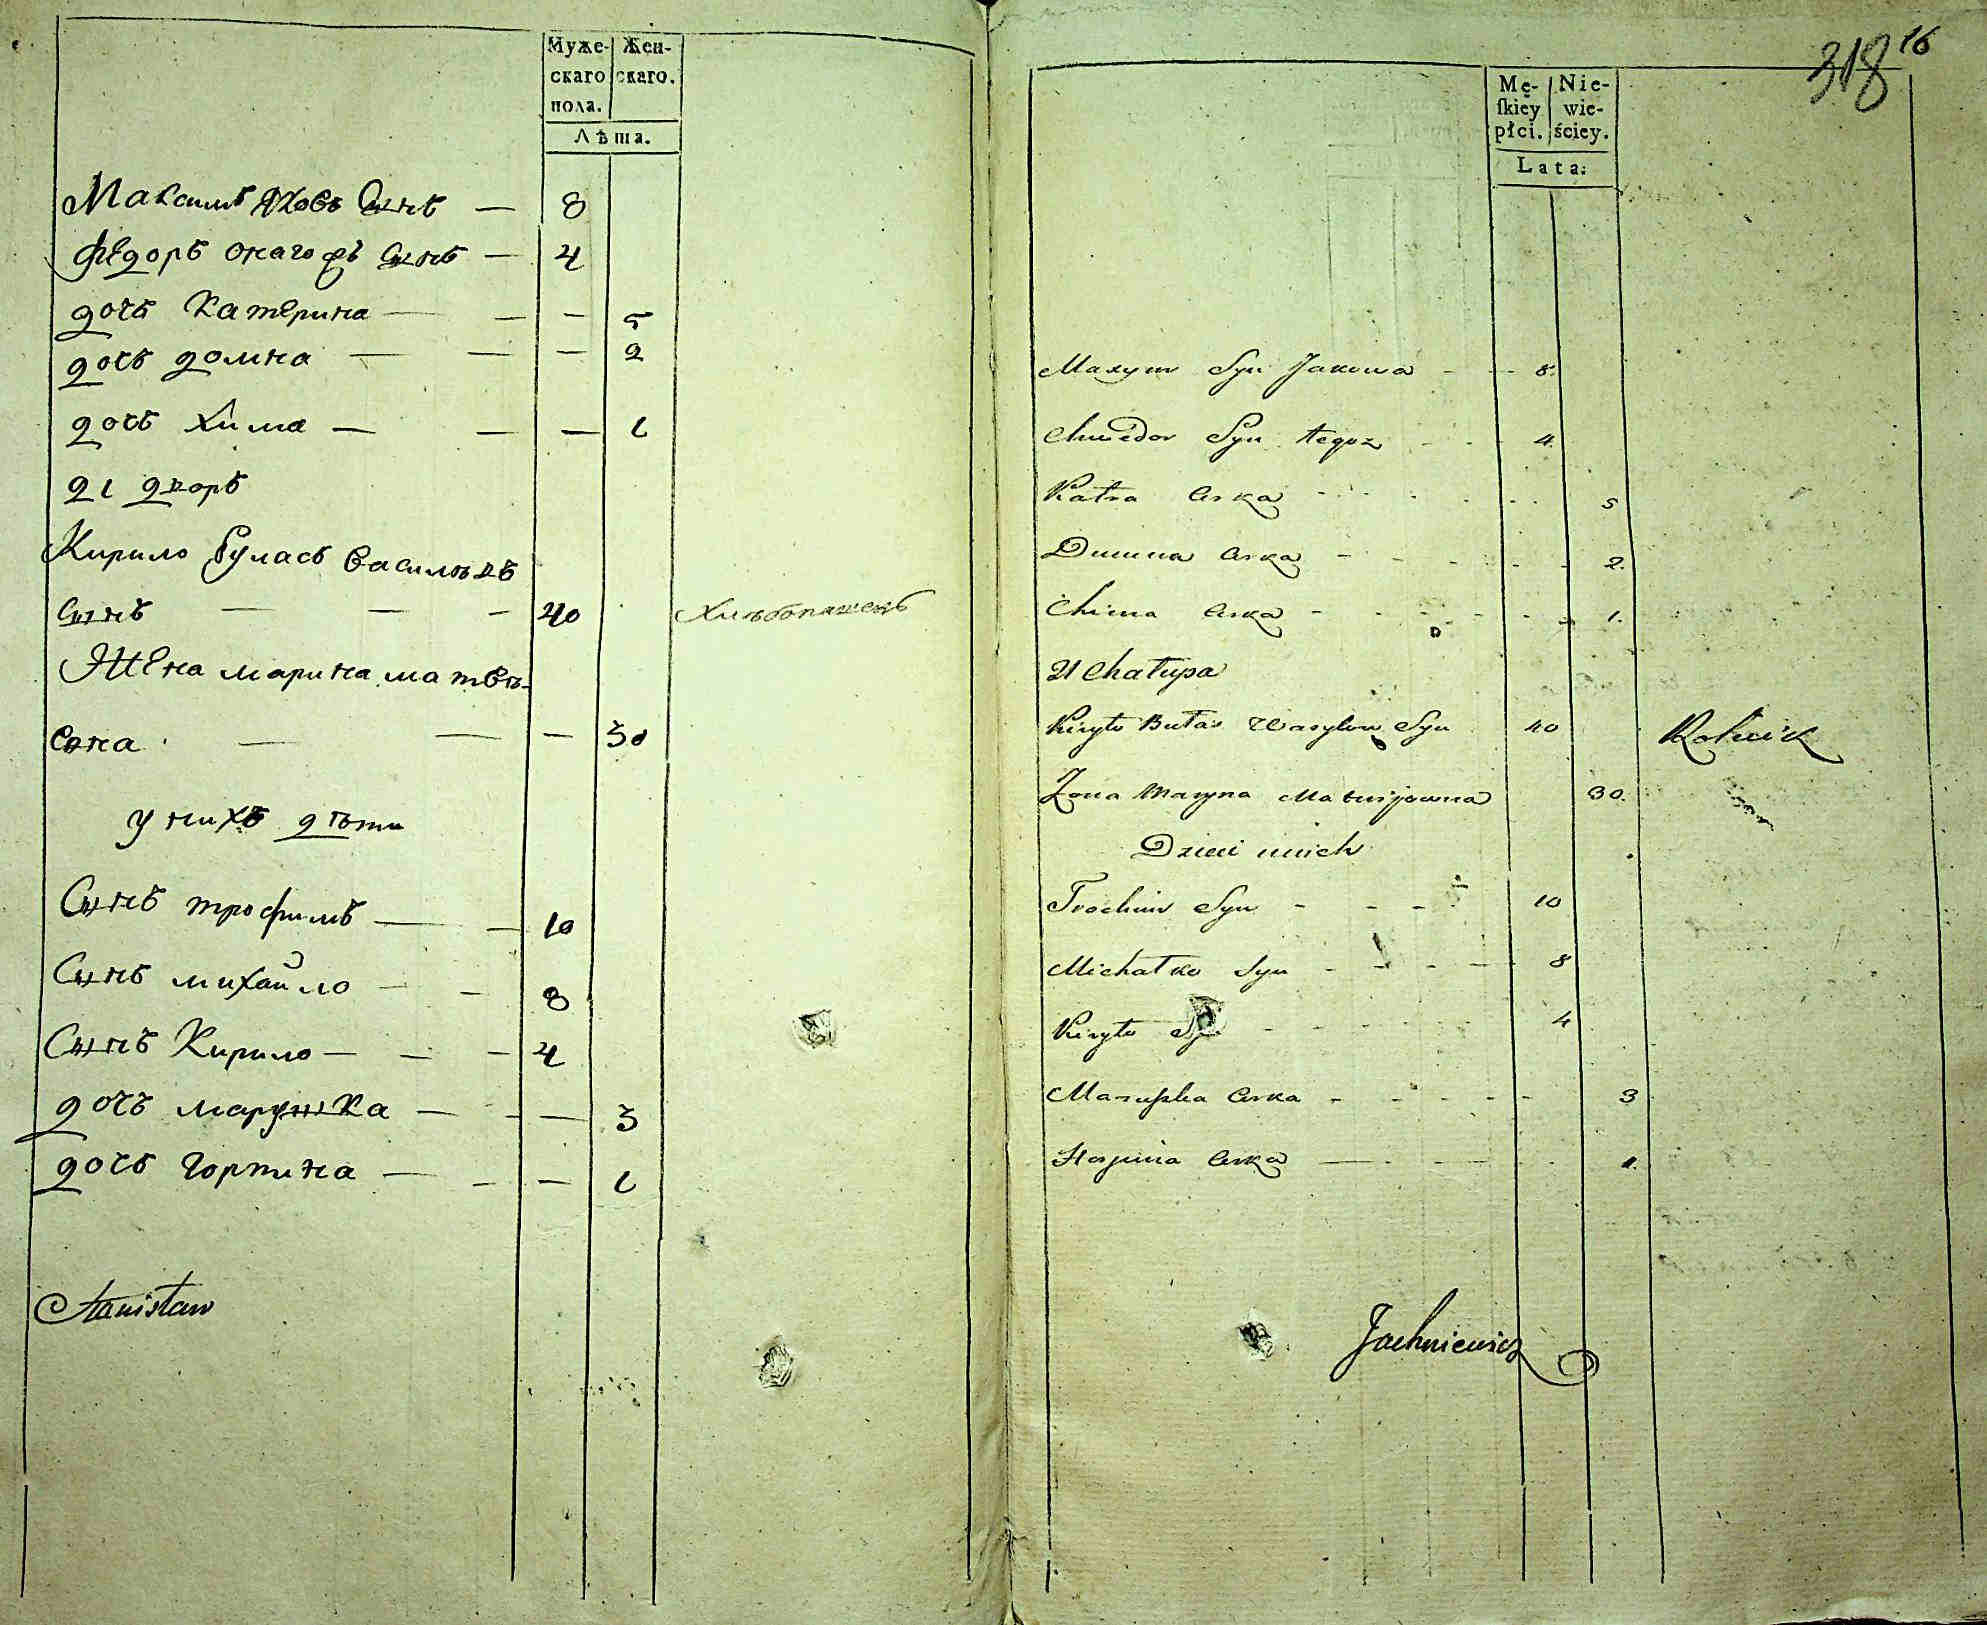 Муже- Жен-
скаго скаго.
пола.
Лѣта.
Максимъ Яковъ Сынъ — 8
Федоръ онагожъ Сынъ — 4
дочь Катерина — — — 5
дочь домна — — — 2
дочь Хима — — — 1
21 дворъ
Кирило Булась Васильевъ
Сынъ — — — 40 Хлѣбопашецъ
Жена марина матвѣ-
евна — — — 30
у нихъ дѣти
Сынъ трофимъ — — 10
Сынъ михайло — — 8
Сынъ Кирило — — — 4
дочь марушка — - — 3
дочь горпина — - — 1
Stanisław
318 16
Mę- Nie-
skiey wie-
płci. ściey.
Lata:
Maxym Syn Jakowa - - 8.
Chwedor Syn tegoz - - 4.
Katra Curka - - - 5
Dumna Curka - - - - 2.
Chima Curka - - - - 1.
21 Chałupa
Kiryło Bułas Wasylow Syn 40 Rolnik
Żona Maryna Matwijowna 30.
Dzieci unich
Trochim Syn - - - - 10
Michałko Syn - - - - 8
Kiryło Syn - - - - 4
Maruszka Curka - - - - 3
Horpina Curka - - - 1.
Jachniewicz